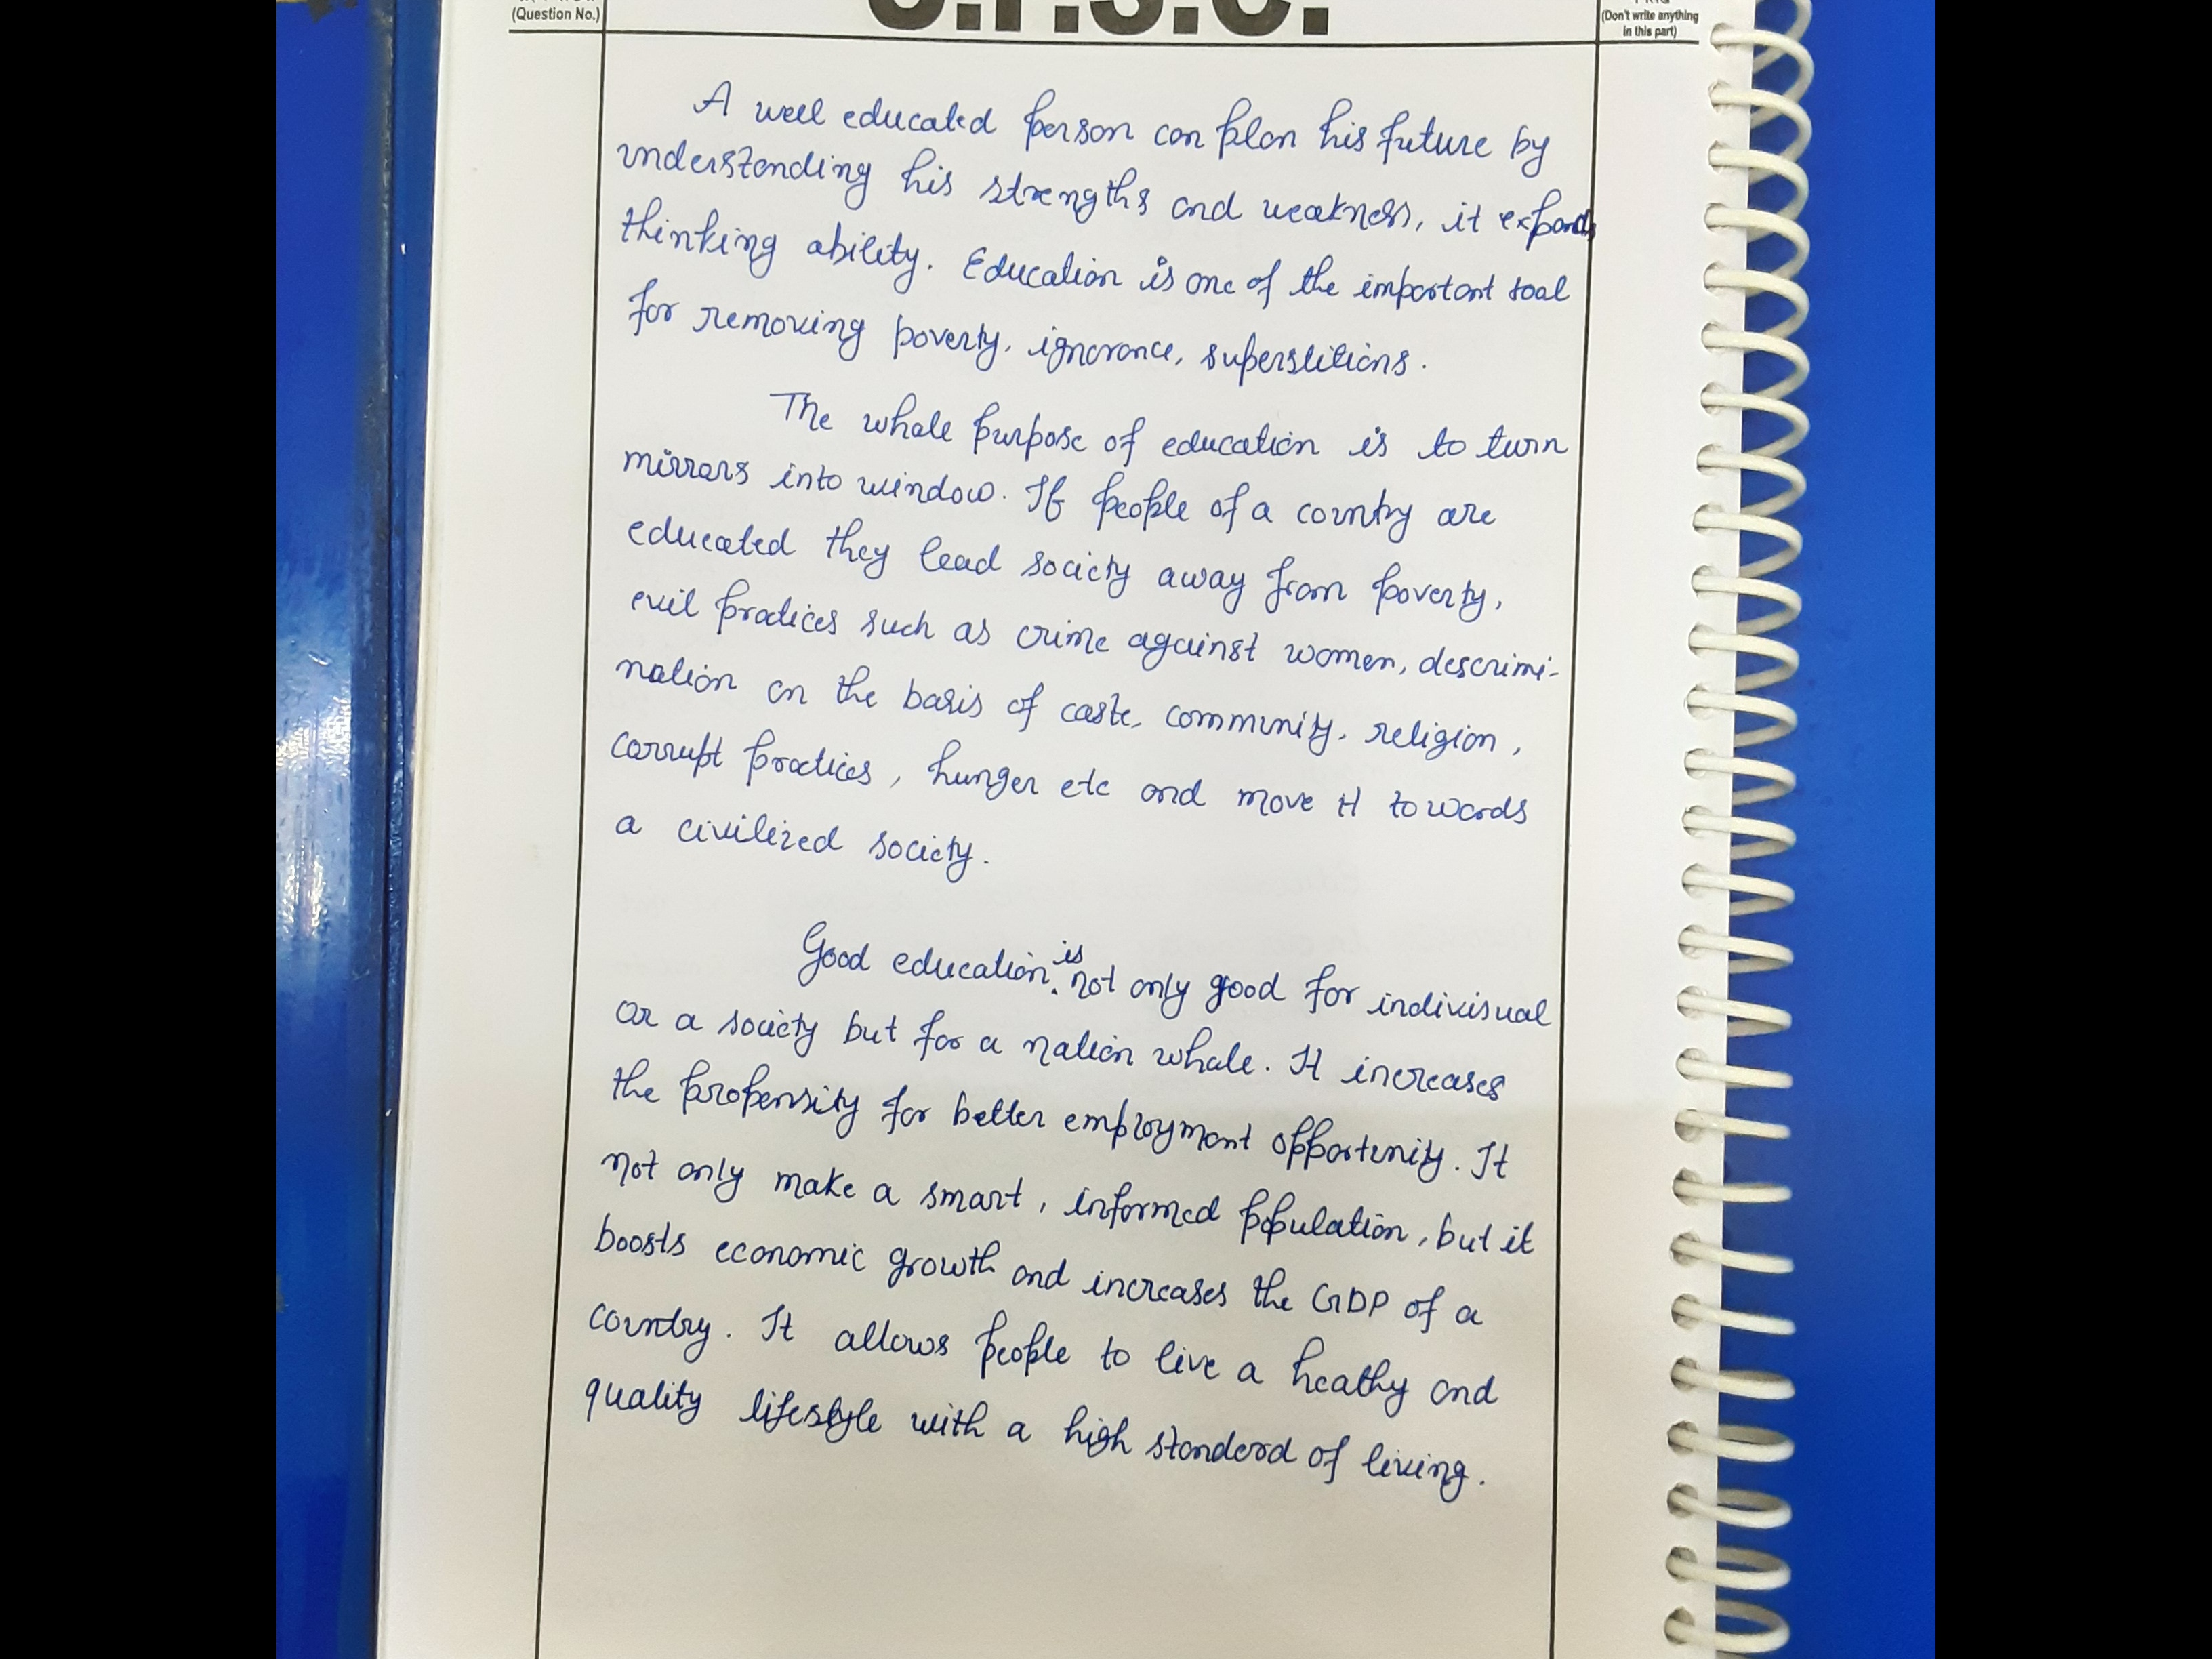 (Question No.)
(Don't write anything
in this part)
A well educated person can plan his future by
understanding his strengths and weakness, it expands
thinking ability. Education is one of the important tool
for removing poverty, ignorance, superstitions.
The whole purpose of education is to turn
mirrors into window. If people of a country are
educated they lead society away from poverty,
evil practices such as crime against women, descrimi-
nation on the basis of caste, community, religion,
corrupt practices, hunger etc and move it towards
a civilized society.
Good education is not only good for indivisual
or a society but for a nation whole. It increases
the propensity for better employment opportunity. It
not only make a smart, informed population, but it
boosts economic growth and increases the GDP of a
country. It allows people to live a heathy and
quality lifestyle with a high standerd of living.